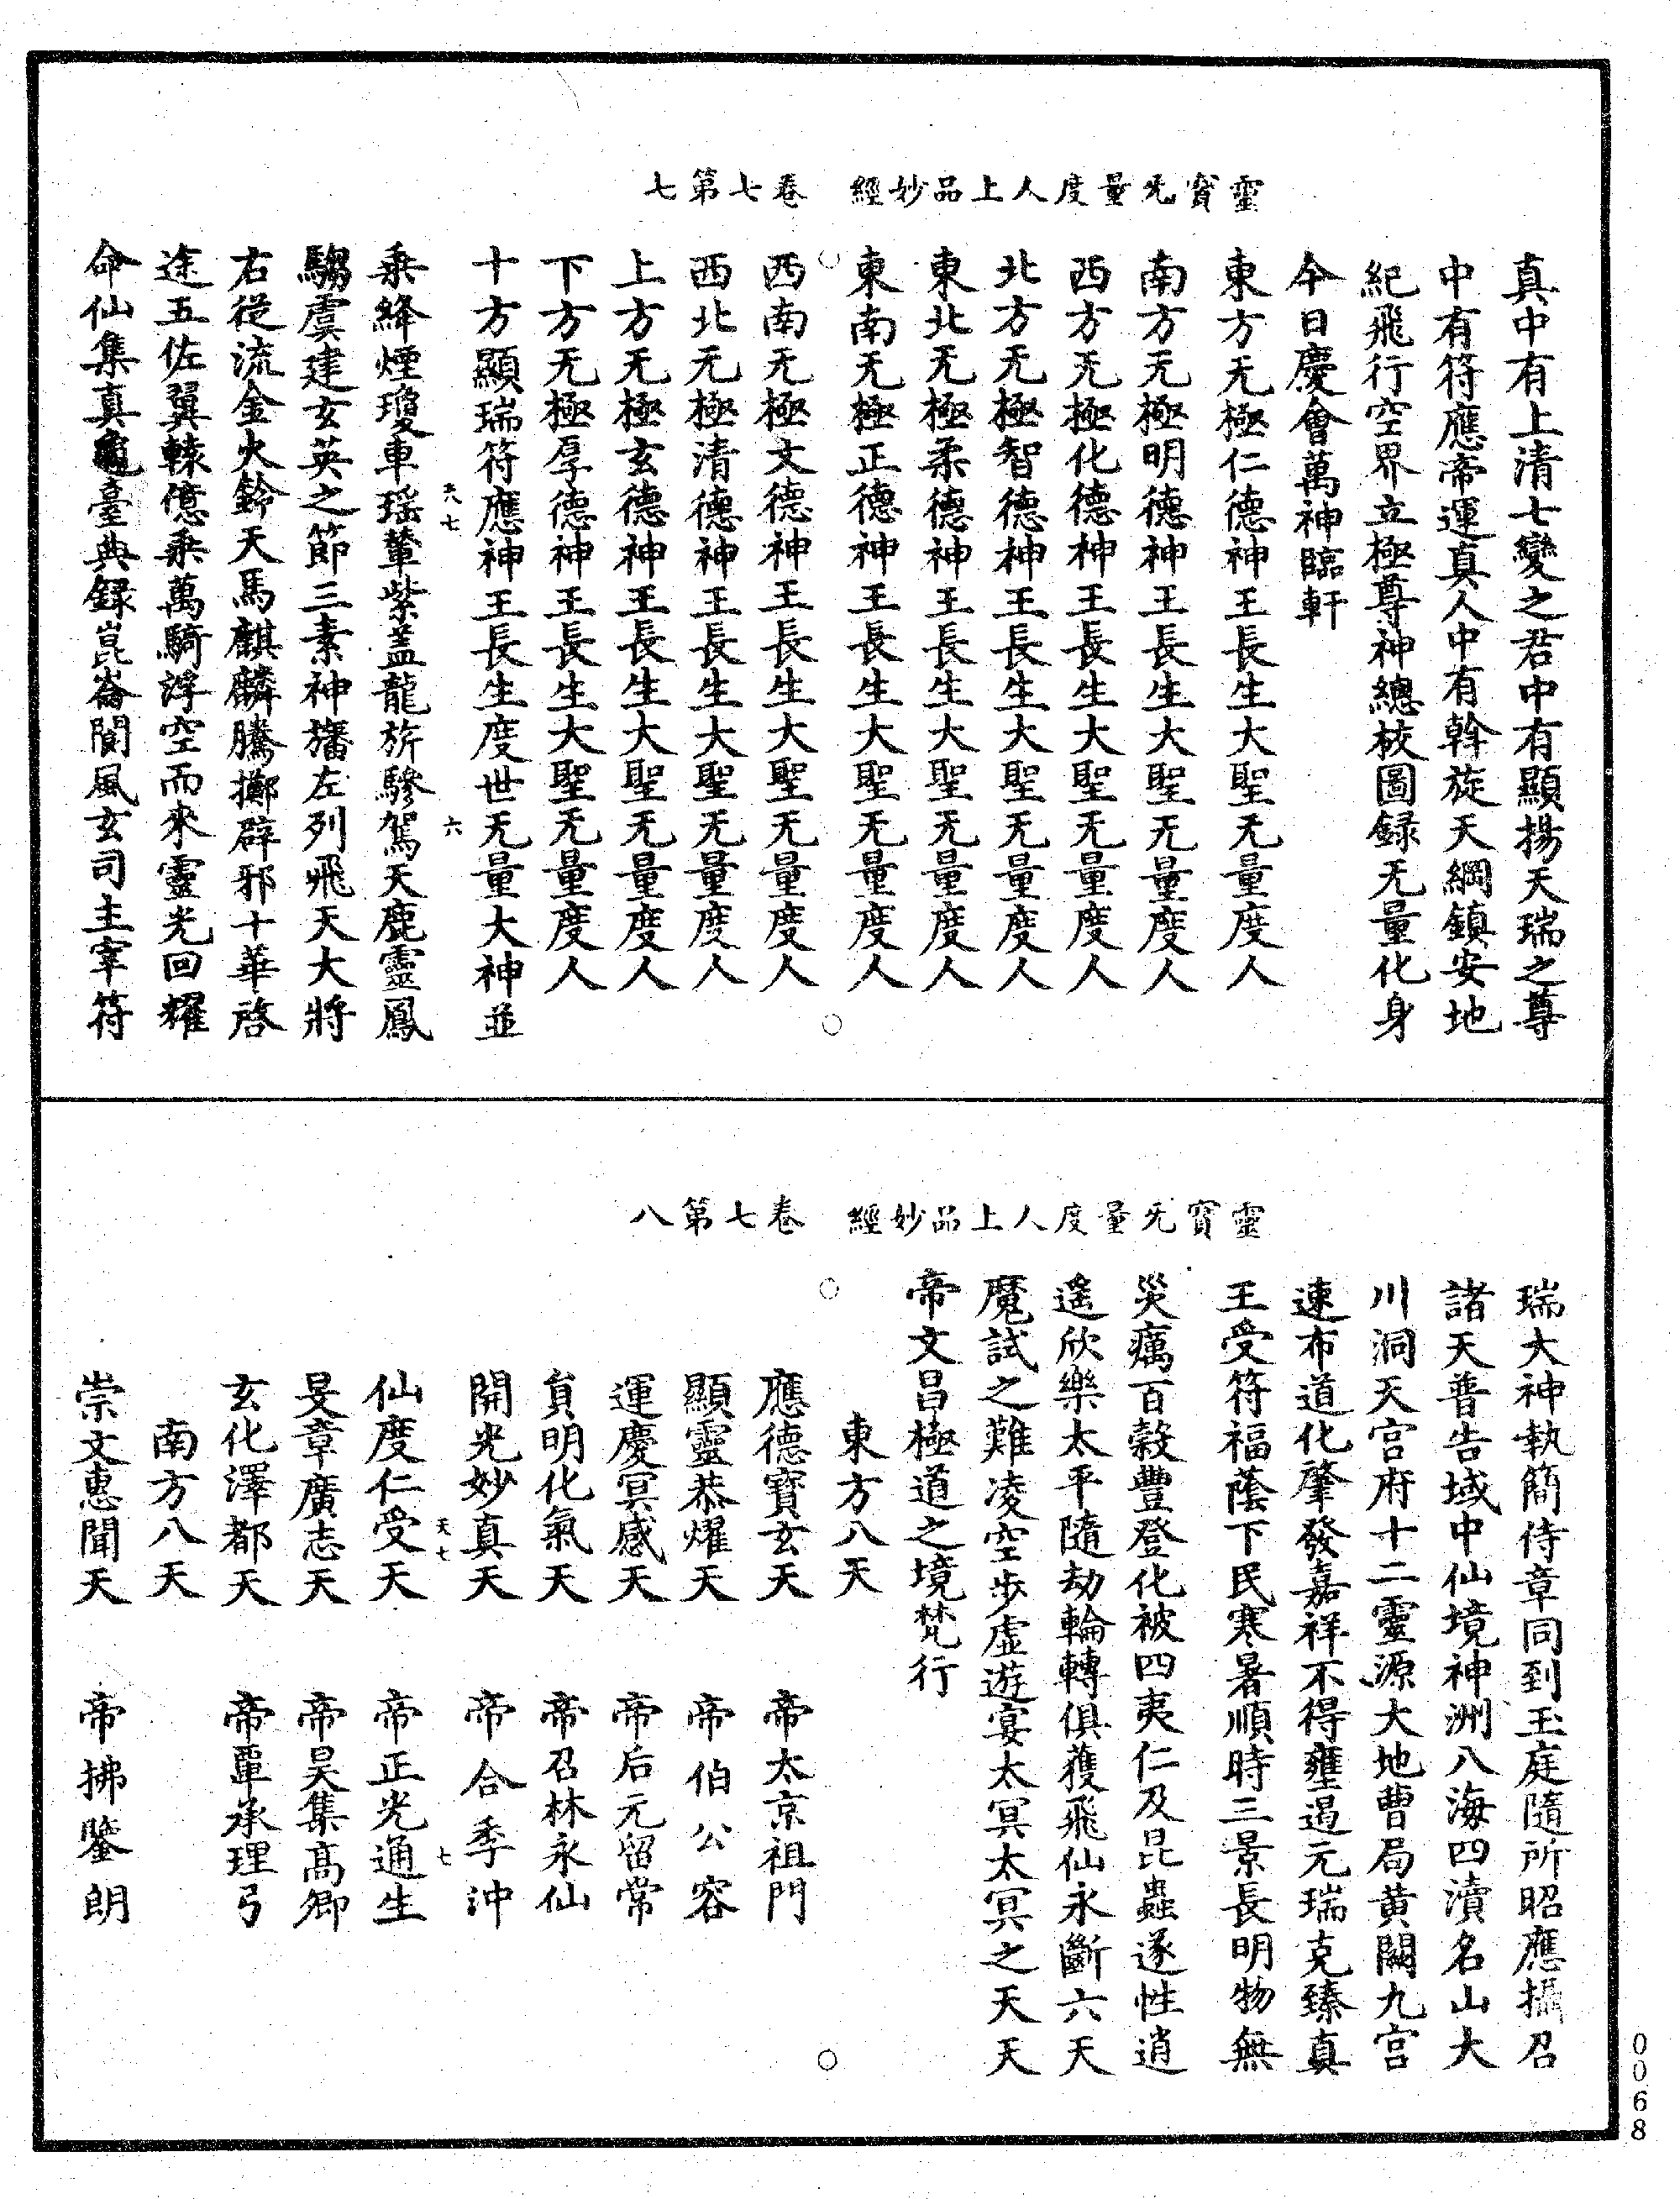 靈寶无量度人上品妙經　卷七第七
真中有上清七變之君中有顯揚天瑞之尊
中有符應帝運真人中有斡旋天綱鎮安地
紀飛行空界立極尊神總校圖録无量化身
今日慶會萬神臨軒
東方无極仁德神王長生大聖无量度人
南方无極明德神王長生大聖无量度人
西方无極化德神王長生大聖无量度人
北方无極智德神王長生大聖无量度人
東北无極柔德神王長生大聖无量度人
東南无極正德神王長生大聖无量度人
西南无極文德神王長生大聖无量度人
西北无極清德神王長生大聖无量度人
上方无極玄德神王長生大聖无量度人
下方无極厚德神王長生大聖无量度人
十方顯瑞符應神王長生度世无量大神並
天七　六
乘絳煙瓊車瑶輦紫盖龍旂驂駕天鹿靈鳳
騶虞建玄英之節三素神旛左列飛天大將
右從流金火鈴天馬麒麟騰擲辟邪十華啓
途五佐翼轅億乘萬騎浮空而來靈光回耀
命仙集真龜臺典録崑崙閬風玄司主宰符
靈寶无量度人上品妙經　卷七第八
瑞大神執簡侍章同到玉庭隨所昭應攝召
諸天普告域中仙境神洲八海四瀆名山大
川洞天宫府十二靈源大地曹局黄闕九宫
速布道化肇發嘉祥不得壅遏元瑞克臻真
王受符福蔭下民寒暑順時三景長明物無
災癘百穀豐登化被四夷仁及昆蟲遂性逍
遙欣樂太平隨劫輪轉俱獲飛仙永斷六天
魔試之難凌空步虚遊宴太冥太冥之天天
帝文昌極道之境梵行
東方八天
應德寶玄天　帝太京祖門
顯靈恭燿天　帝伯公容
運慶冥感天　帝后元留常
貟明化氣天　帝召林永仙
開光妙真天　帝合季沖
天七　七
仙度仁受天　帝正光通生
旻章廣志天　帝昊集髙卿
玄化澤都天　帝覃承理弓
南方八天
崇文惠聞天　帝拂鑒朗
0068